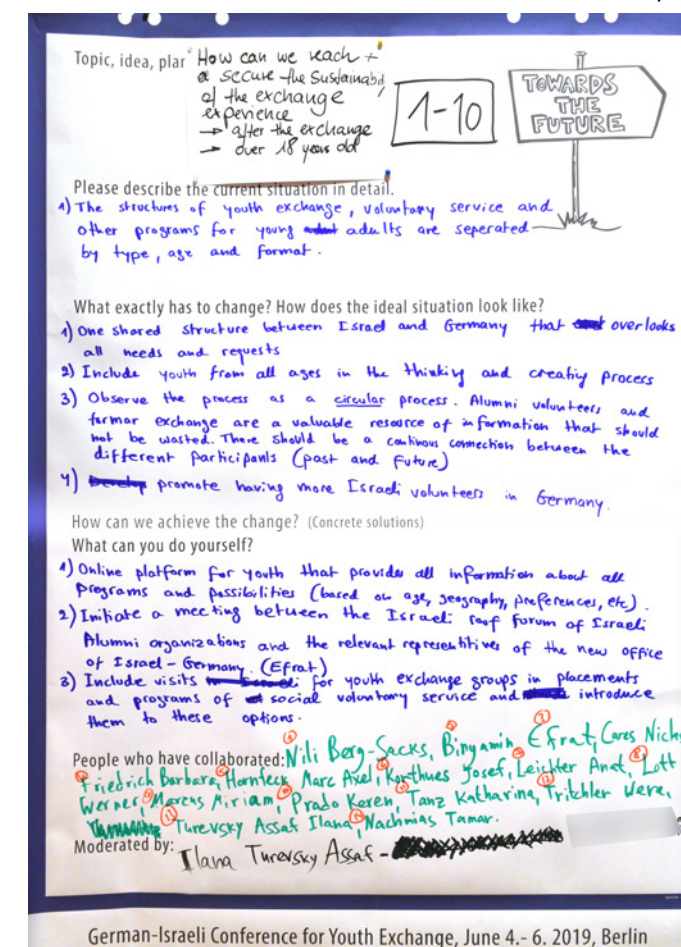 Topic, idea, plan
How can we reach +
a secure the Sustainabi
of the exchange
experience
→ after the exchange
→ over 18 years old
1-10
TOWARDS
THE
FUTURE
Please describe the current situation in detail.
1) The structures of youth exchange, voluntary service and
other programs for young adults are seperated
by type, age and format.
What exactly has to change? How does the ideal situation look like?
1) One shared structure between Israel and Germany that overlooks
all needs and requests
2) Include youth from all ages in the thinking and creating process
3) Observe the process as a circular process. Alumni volunteers and
former exchange are a valuable resource of information that should
not be wasted. There should be a continous connection between the
different participants (past and future)
4) promote having more Israeli volunteers in Germany.
How can we achieve the change? (Concrete solutions)
What can you do yourself?
1) Online platform for youth that provides all information about all
programs and possibilities (based on age, geography, preferences, etc).
2) Initiate a meeting between the Israeli roof forum of Israeli
Alumni organizations and the relevant representitives of the new office
of Israel - Germany. (Efrat)
3) Include visits for youth exchange groups in placements
and programs of social voluntary service and introduce
them to these options.
People who have collaborated: Nili Berg-Sacks, Binyamin Efrat, Cares Nich
Friedrich Barbara, Hornfeck Marc Axel, Korthues Josef, Leichter Anat, Lott
Werner, Marcus Miriam, Prado Keren, Tanz Katharina, Tritchler Vera,
Turevsky Assaf Ilana, Nachmias Tamar.
Moderated by: Ilana Turevsky Assaf -
German-Israeli Conference for Youth Exchange, June 4.- 6. 2019, Berlin